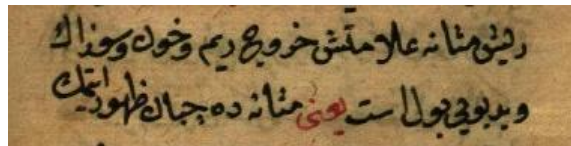 ریش مثانه علامتش خروج ریم و خون و سوزاك
و بدبویی بول است یعنی مثانه ده چبان ظهور ایتمك